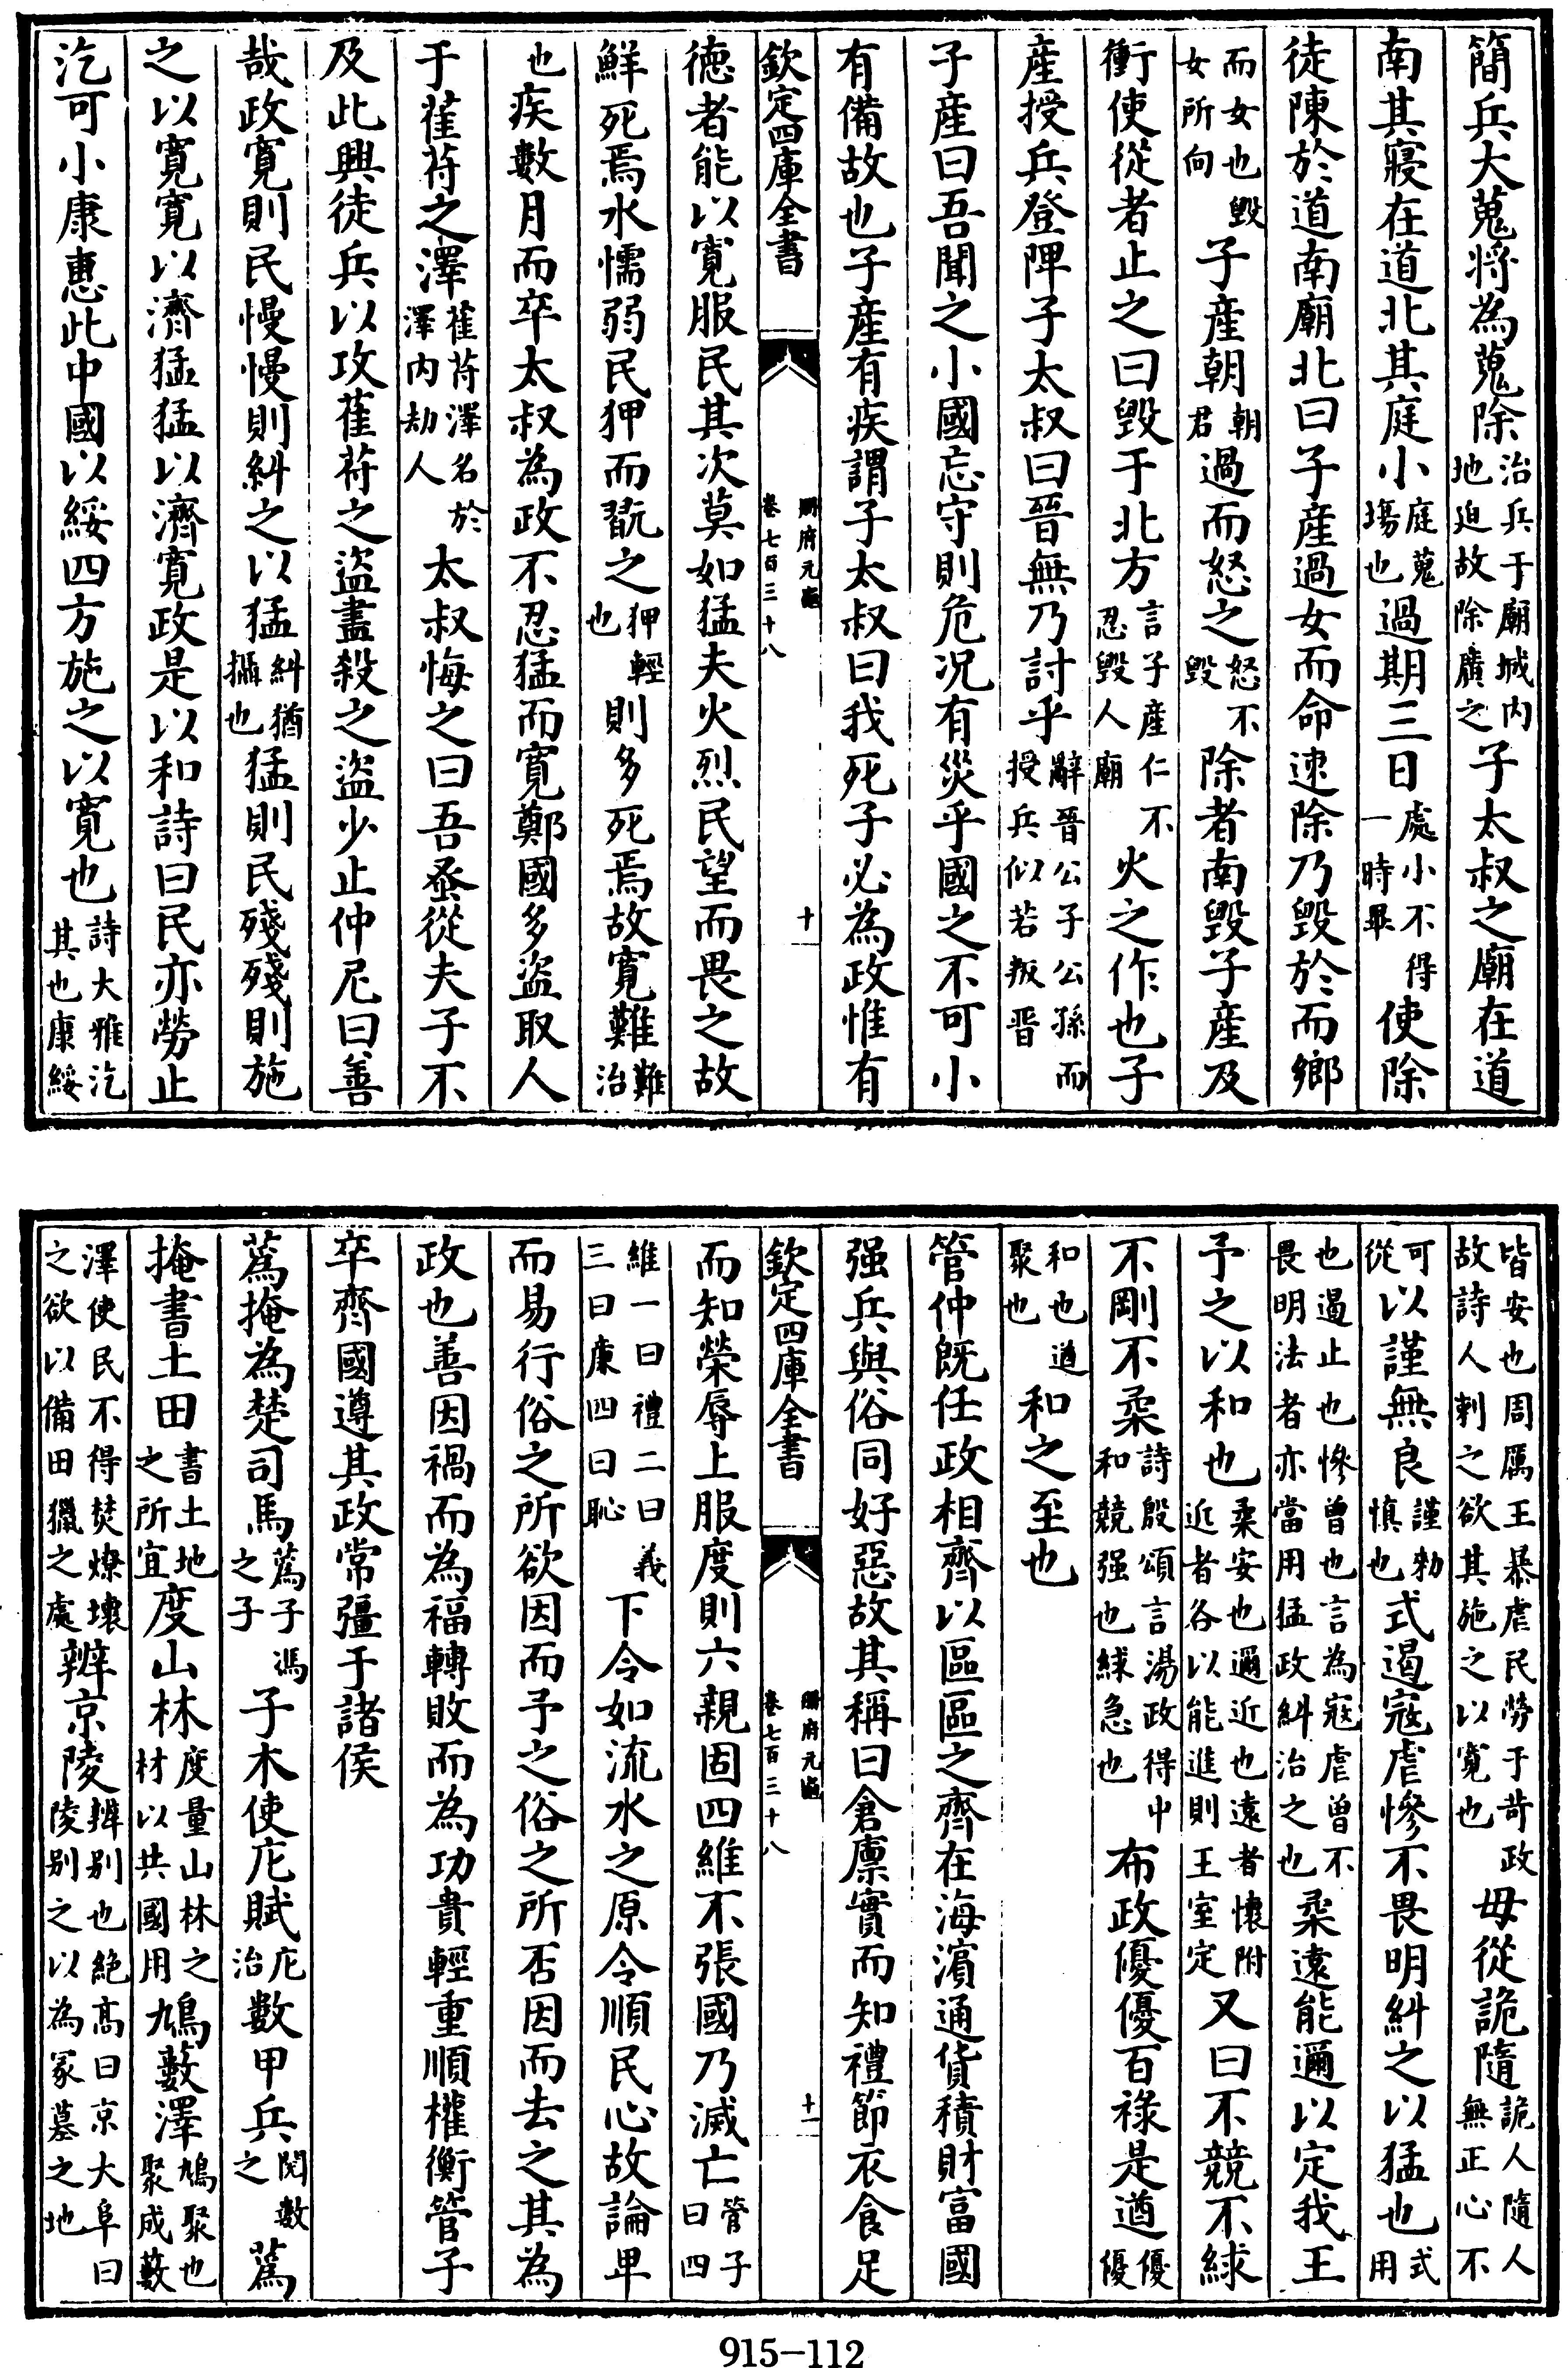 簡兵大蒐將為蒐除治兵于廟城内地迫故除廣之子太叔之廟在道
南其寢在道北其庭小庭蒐塲也過期三日處小不得一時畢使除
徒陳於道南廟北曰子産過女而命速除乃毀於而鄉
而女也女所向毀子産朝朝君過而怒之怒不毀除者南毀子産及
衝使從者止之曰毀于北方言子産仁不忍毀人廟火之作也子
産授兵登陴子太叔曰晉無乃討乎辭晉公子公孫而授兵似若叛晉
子産曰吾聞之小國忘守則危况有災乎國之不可小
有備故也子産有疾謂子太叔曰我死子必為政惟有
欽定四庫全書 冊府元龜 卷七百三十八 十
徳者能以寛服民其次莫如猛夫火烈民望而畏之故
鮮死焉水懦弱民狎而翫之狎輕也則多死焉故寛難難治
也疾數月而卒太叔為政不忍猛而寛鄭國多盜取人
于萑苻之澤萑苻澤名於澤内劫人太叔悔之曰吾蚤從夫子不
及此興徒兵以攻萑苻之盜盡殺之盜少止仲尼曰善
哉政寛則民慢慢則糾之以猛糾猶攝也猛則民殘殘則施
之以寛寛以濟猛猛以濟寛政是以和詩曰民亦勞止
汔可小康惠此中國以綏四方施之以寛也詩大雅汔其也康綏
皆安也周厲王暴虐民勞于苛政故詩人刺之欲其施之以寛也毋從詭隨詭人隨人無正心不
可從以謹無良謹勑慎也式遏寇虐慘不畏明糾之以猛也式用
也遏止也慘曽也言為寇虐曽不畏明法者亦當用猛政糾治之也柔遠能邇以定我王
予之以和也柔安也邇近也遠者懷附近者各以能進則王室定又曰不競不絿
不剛不柔詩殷頌言湯政得中和競强也絿急也布政優優百祿是遒優優
和也遒聚也和之至也
管仲既任政相齊以區區之齊在海濵通貨積財富國
强兵與俗同好惡故其稱曰倉廪實而知禮節衣食足
欽定四庫全書 冊府元龜 卷七百三十八 十一
而知榮辱上服度則六親固四維不張國乃滅亡管子曰四
維一曰禮二曰義三曰㢘四曰恥下令如流水之原令順民心故論卑
而易行俗之所欲因而予之俗之所否因而去之其為
政也善因禍而為福轉敗而為功貴輕重順權衡管子
卒齊國遵其政常彊于諸侯
蒍掩為楚司馬蒍子馮之子子木使庀賦庀治數甲兵閱數之蒍
掩書土田書土地之所宜度山林度量山林之材以共國用鳩藪澤鳩聚也聚成藪
澤使民不得焚燎壊之欲以備田獵之處辨京陵辨别也絶髙曰京大阜曰陵别之以為冢墓之地
915-112